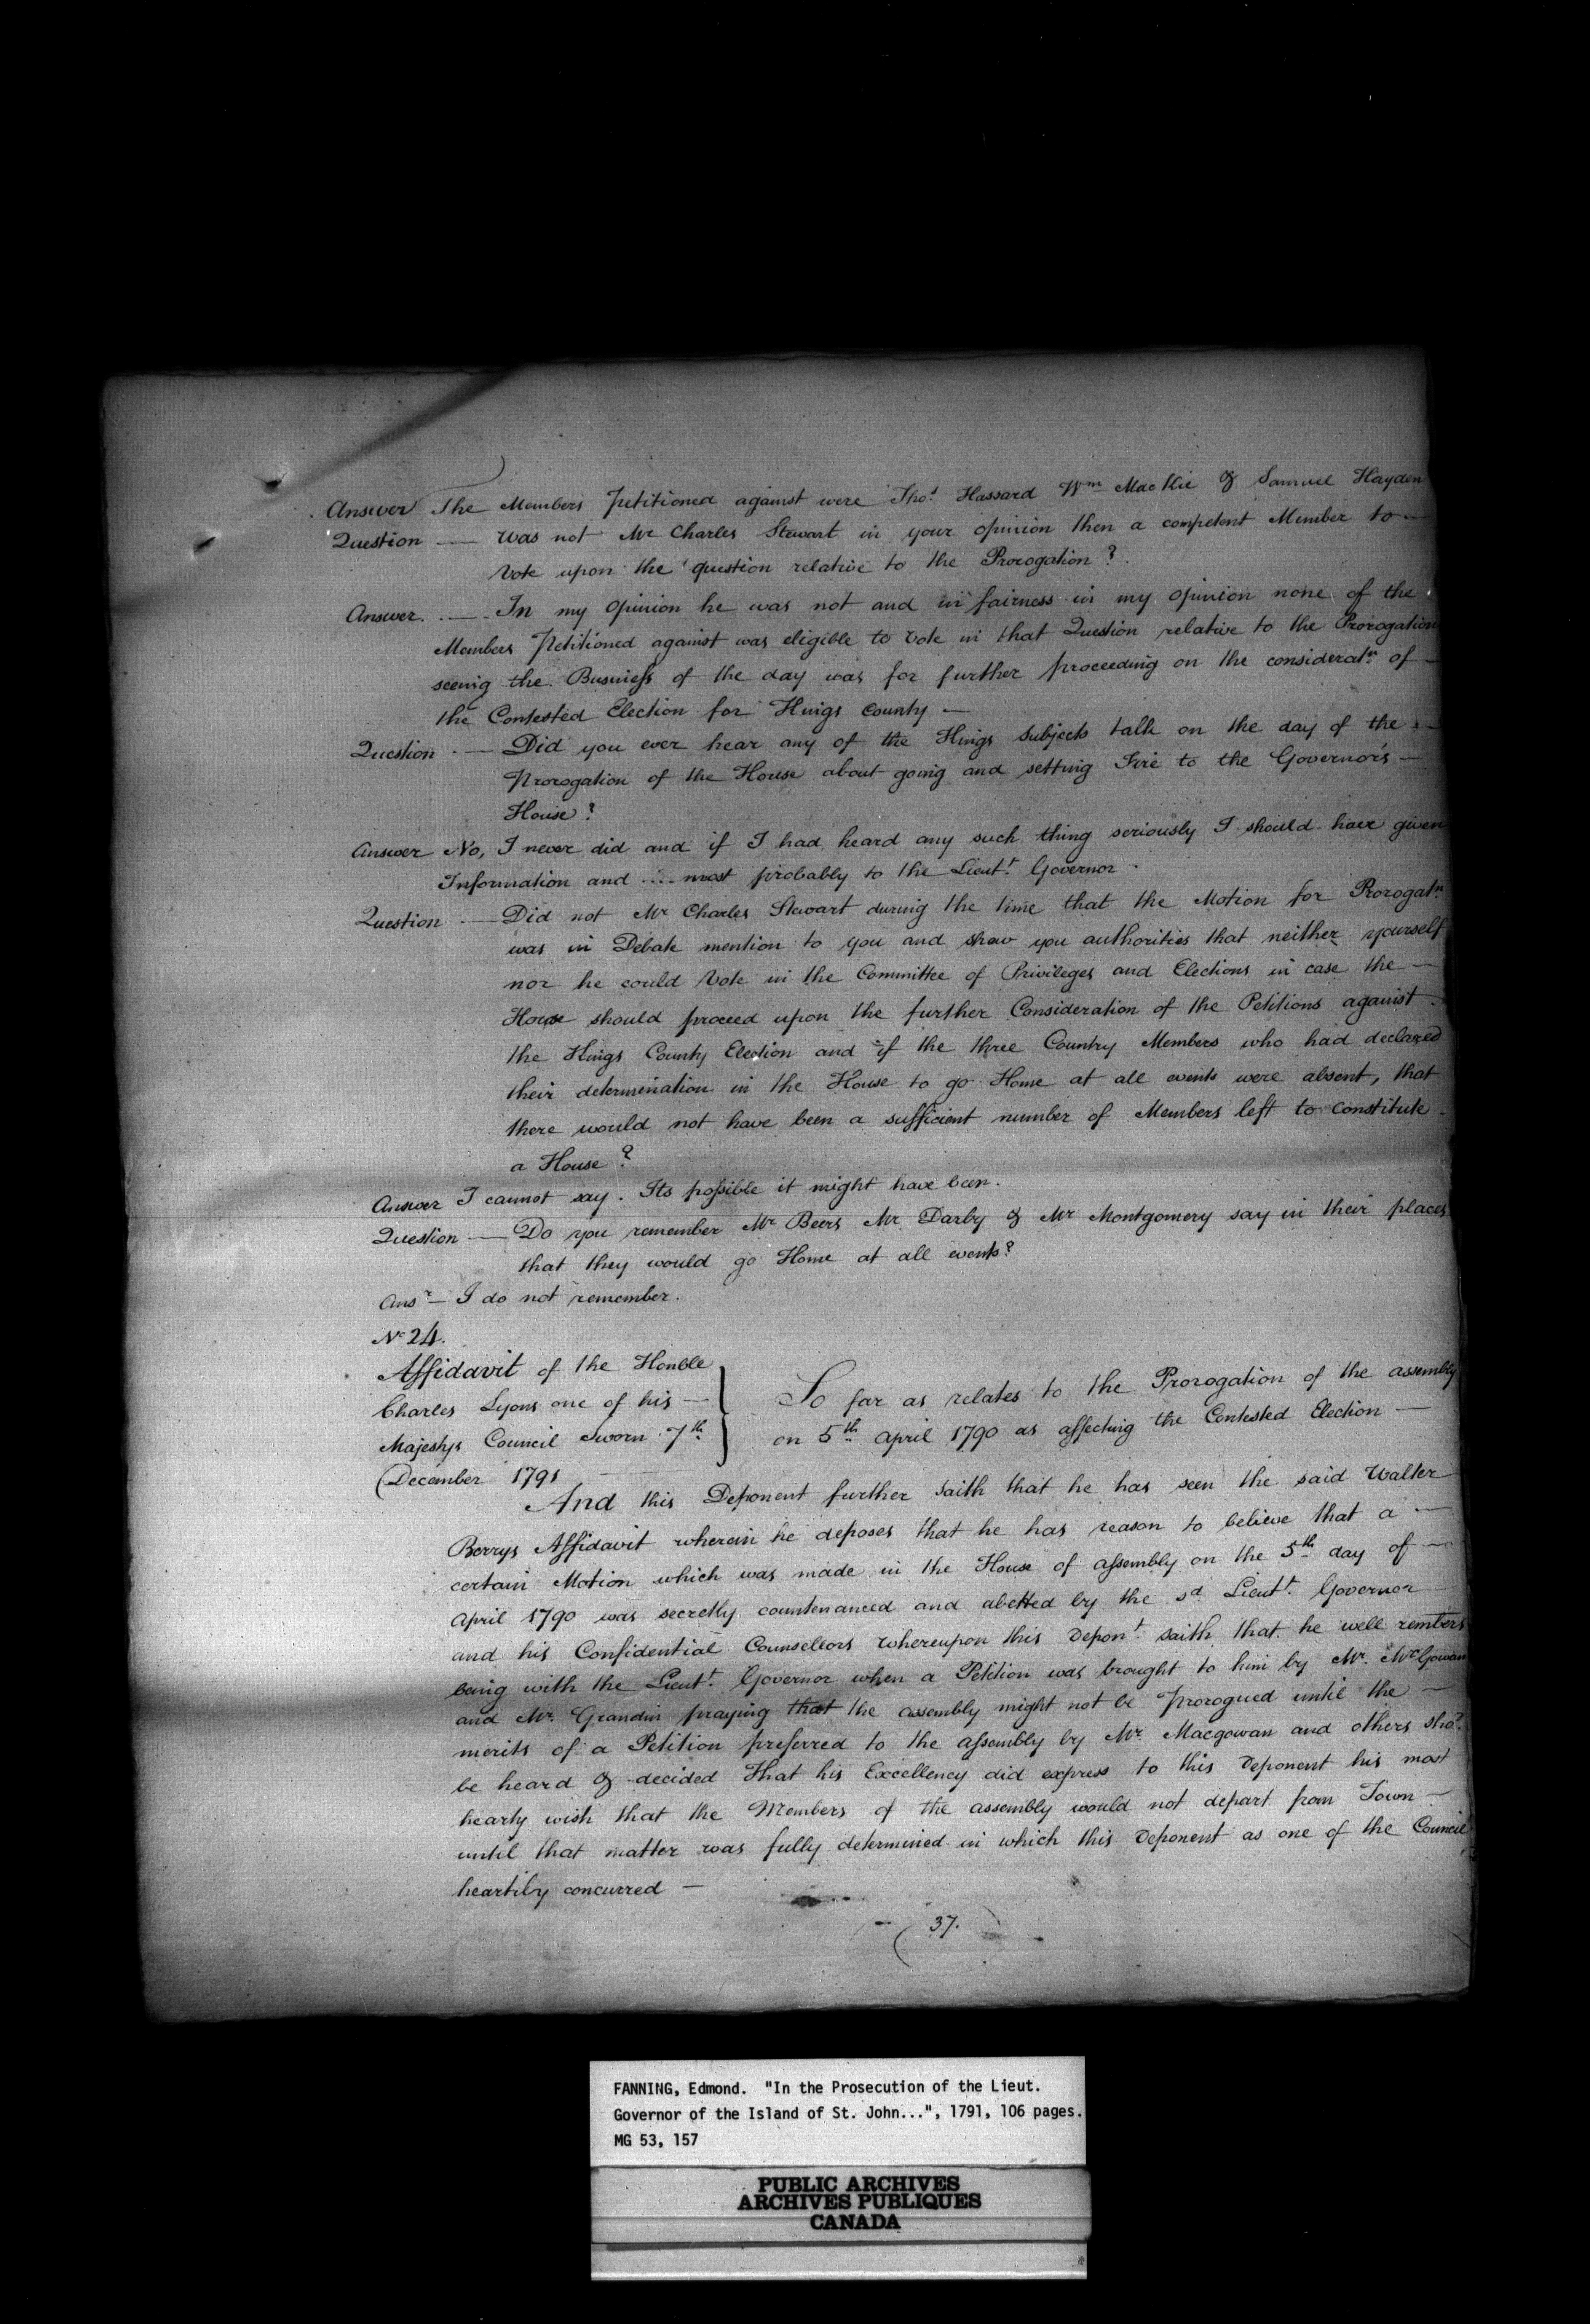 Answer The Members Petitioned against were Thos. Hassard Wm MacKie & Samuel Hayden
Question — Was not Mr Charles Stewart in your opinion then a competent Member to —
Vote upon the question relative to the Prorogation?
Answer. — In my Opinion he was not and in fairness in my opinion none of the
Members Petitioned against was eligible to vote in that Question relative to the Prorogation
seeing the Business of the day was for further proceeding on the consideratn. of —
the Contested Election for Kings County —
Question — Did you ever hear any of the Kings Subjects talk on the day of the —
Prorogation of the House about going and setting Fire to the Governor's —
House?
Answer No, I never did and if I had heard any such thing seriously I should have given
Information and .... most probably to the Lieut. Governor.
Question — Did not Mr Charles Stewart during the time that the Motion for Prorogatn.
was in Debate mention to you and shew you authorities that neither yourself
nor he could Vote in the Committee of Privileges and Elections in case the —
House should proceed upon the further Consideration of the Petitions against
the Kings County Election and if the three Country Members who had declared
their determination in the House to go Home at all events were absent, that
there would not have been a sufficient number of Members left to constitute
a House?
Answer I cannot say. Its possible it might have been.
Question — Do you remember Mr Beers Mr Darby & Mr Montgomery say in their places
that they would go Home at all events?
Ansr — I do not remember.
No 24.
Affidavit of the Honble
Charles Lyons one of his —
Majestys Council Sworn 7th
December 1791
So far as relates to the Prorogation of the assembly
on 5th. April 1790 as affecting the Contested Election —
And this Deponent further Saith that he has seen the said Walter
Berrys Affidavit wherein he deposes that he has reason to believe that a —
certain Motion which was made in the House of assembly on the 5th day of —
April 1790 was secretly countenanced and abetted by the sd. Lieut. Governor
and his Confidential Counsellors whereupon this Depont. saith that he well rembers
being with the Lieut. Governor when a Petition was brought to him by Mr. McGowan
and Mr. Grandin praying that the assembly might not be Prorogued until the —
merits of a Petition preferred to the assembly by Mr. Macgowan and others shod.
be heard & decided That his Excellency did express to this Deponent his most
hearty wish that the Members of the assembly would not depart from Town —
until that matter was fully determined in which this Deponent as one of the Council
heartily concurred —
(37.)
FANNING, Edmond. "In the Prosecution of the Lieut.
Governor of the Island of St. John...", 1791, 106 pages.
MG 53, 157
PUBLIC ARCHIVES
ARCHIVES PUBLIQUES
CANADA